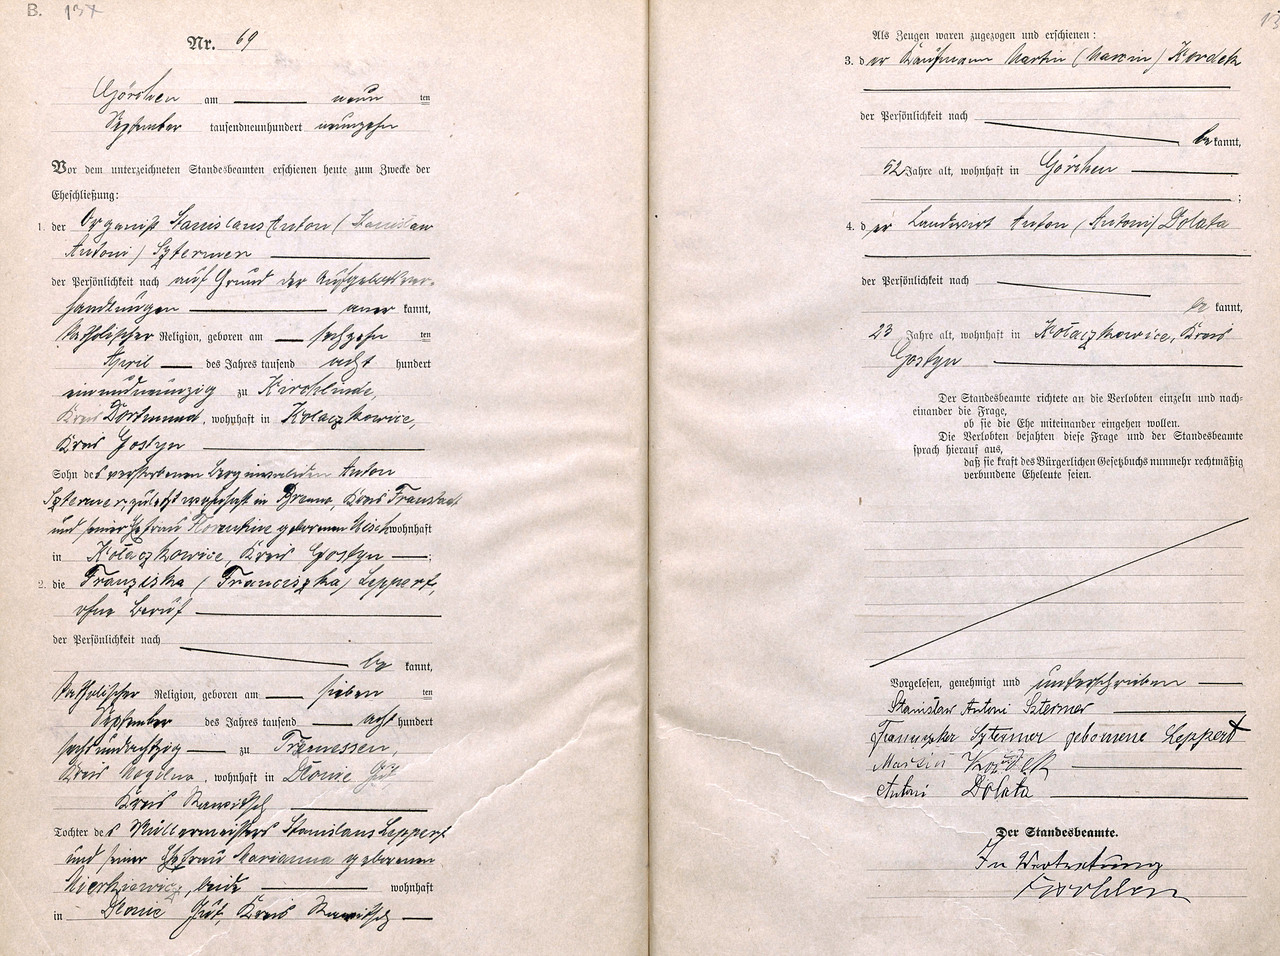 B. 137
Nr. 69
Görchen am neun ten
September tausendneunhundert neunzehn
Vor dem unterzeichneten Standesbeamten erschienen heute zum Zwecke der
Eheschließung:
1. der Organist Stanislaus Anton (Stanislaw
Antoni) Sztermer
der Persönlichkeit nach auf Grund der Aufgebotsver-
handlungen aner kannt,
katholischer Religion, geboren am sechzehn ten
April des Jahres tausend acht hundert
einundneunzig zu Kirchlinde,
Kreis Dortmund, wohnhaft in Kołaczkowice,
Kreis Gostyn
Sohn des verstorbenen Berginvaliden Anton
Sztermer, zuletzt wohnhaft in Brenno, Kreis Fraustadt
und seiner Ehefrau Florentine geborenen wohnhaft
in Kołaczkowice, Kreis Gostyn ;
2. die Franziska (Franciszka) Leppert,
ohne Beruf
der Persönlichkeit nach
be kannt,
katholischer Religion, geboren am sieben ten
September des Jahres tausend acht hundert
sechsundachtzig zu Tremessen,
Kreis Mogilno, wohnhaft in Dłonie Gut,
Kreis Rawitsch
Tochter des Müllermeisters Stanislaus Leppert
und seiner Ehefrau Marianna geborenen
beide wohnhaft
in Dłonie Gut, Kreis Rawitsch
Als Zeugen waren zugezogen und erschienen:
3. der Kaufmann Martin (Marcin) Kordek
der Persönlichkeit nach
be kannt,
52 Jahre alt, wohnhaft in Görchen
;
4. der Landwirt Anton (Antoni) Dolata
der Persönlichkeit nach
be kannt,
23 Jahre alt, wohnhaft in Kołaczkowice, Kreis
Gostyn
Der Standesbeamte richtete an die Verlobten einzeln und nach-
einander die Frage,
ob sie die Ehe miteinander eingehen wollen.
Die Verlobten bejahten diese Frage und der Standesbeamte
sprach hierauf aus,
daß sie kraft des Bürgerlichen Gesetzbuchs nunmehr rechtmäßig
verbundene Eheleute seien.
Vorgelesen, genehmigt und unterschrieben
Stanisław Antoni Sztermer
Franciszka Sztermer gebornene Leppert
Marcin Kordek
Antoni Dolata
Der Standesbeamte.
In Vertretung